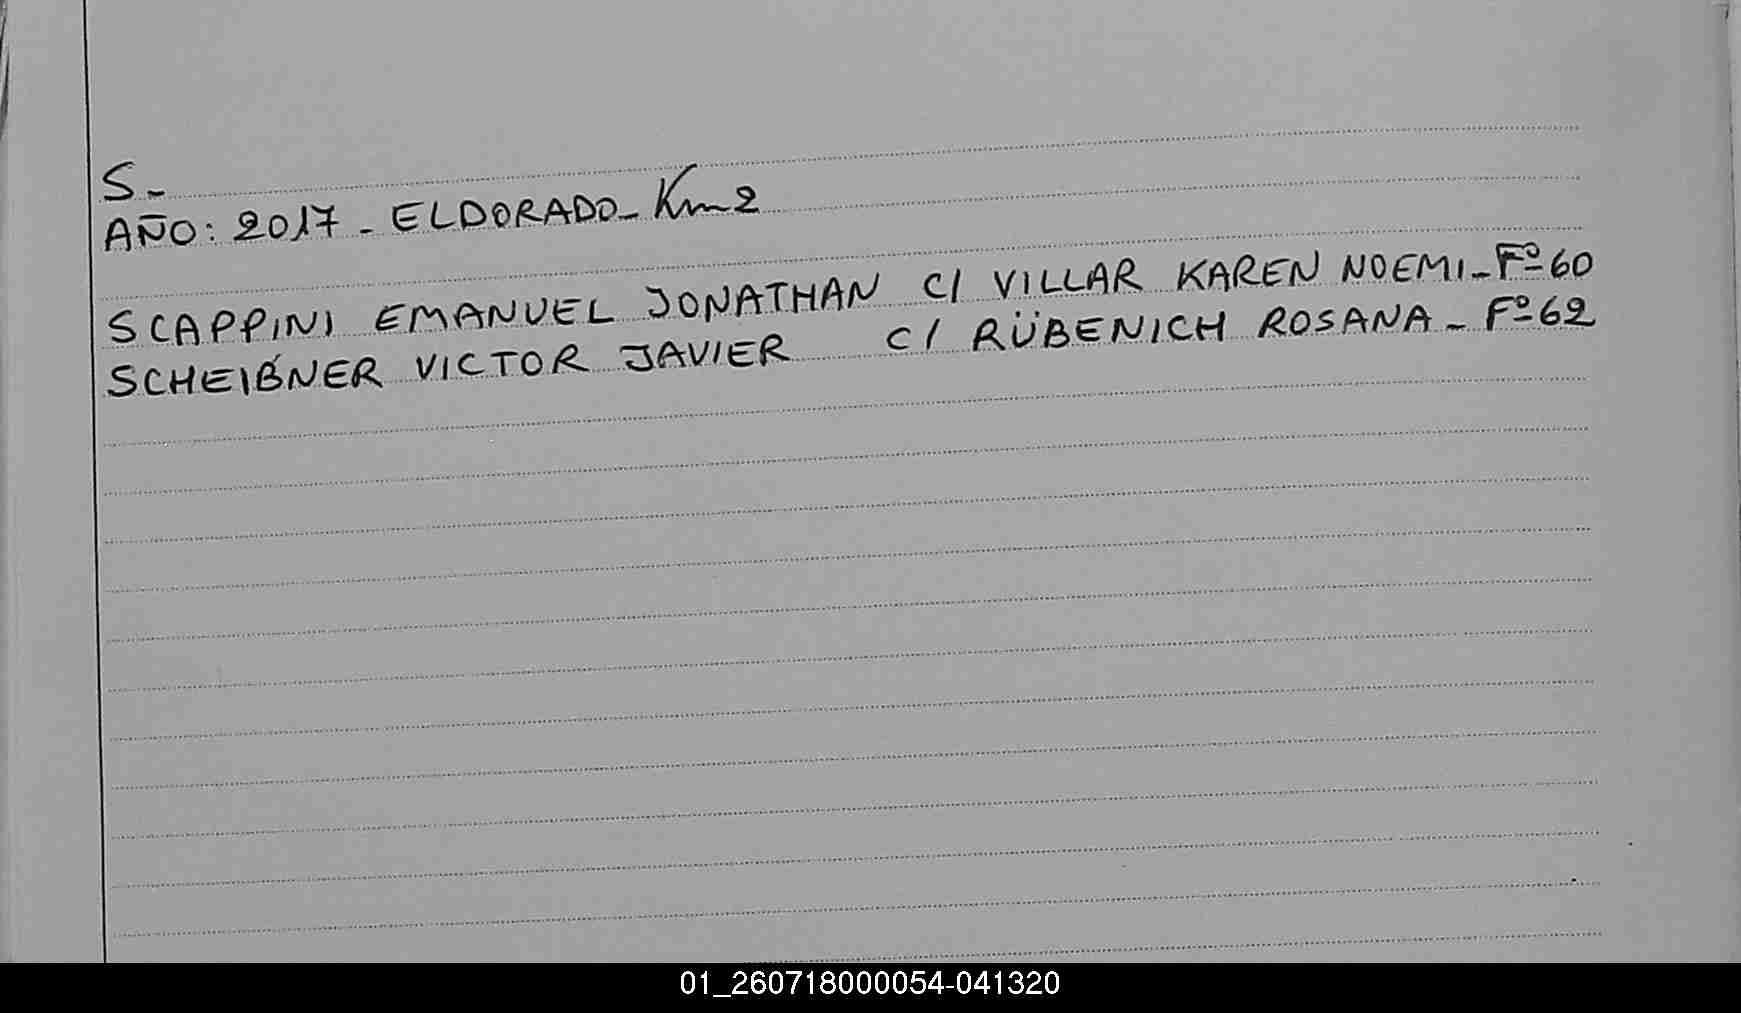 S-
AÑO: 2017 - ELDORADO - Km 2
SCAPPINI EMANUEL JONATHAN C/ VILLAR KAREN NOEMI - Fº 60
SCHEIBNER VICTOR JAVIER C/ RÜBENICH ROSANA - Fº 62
01_260718000054-041320